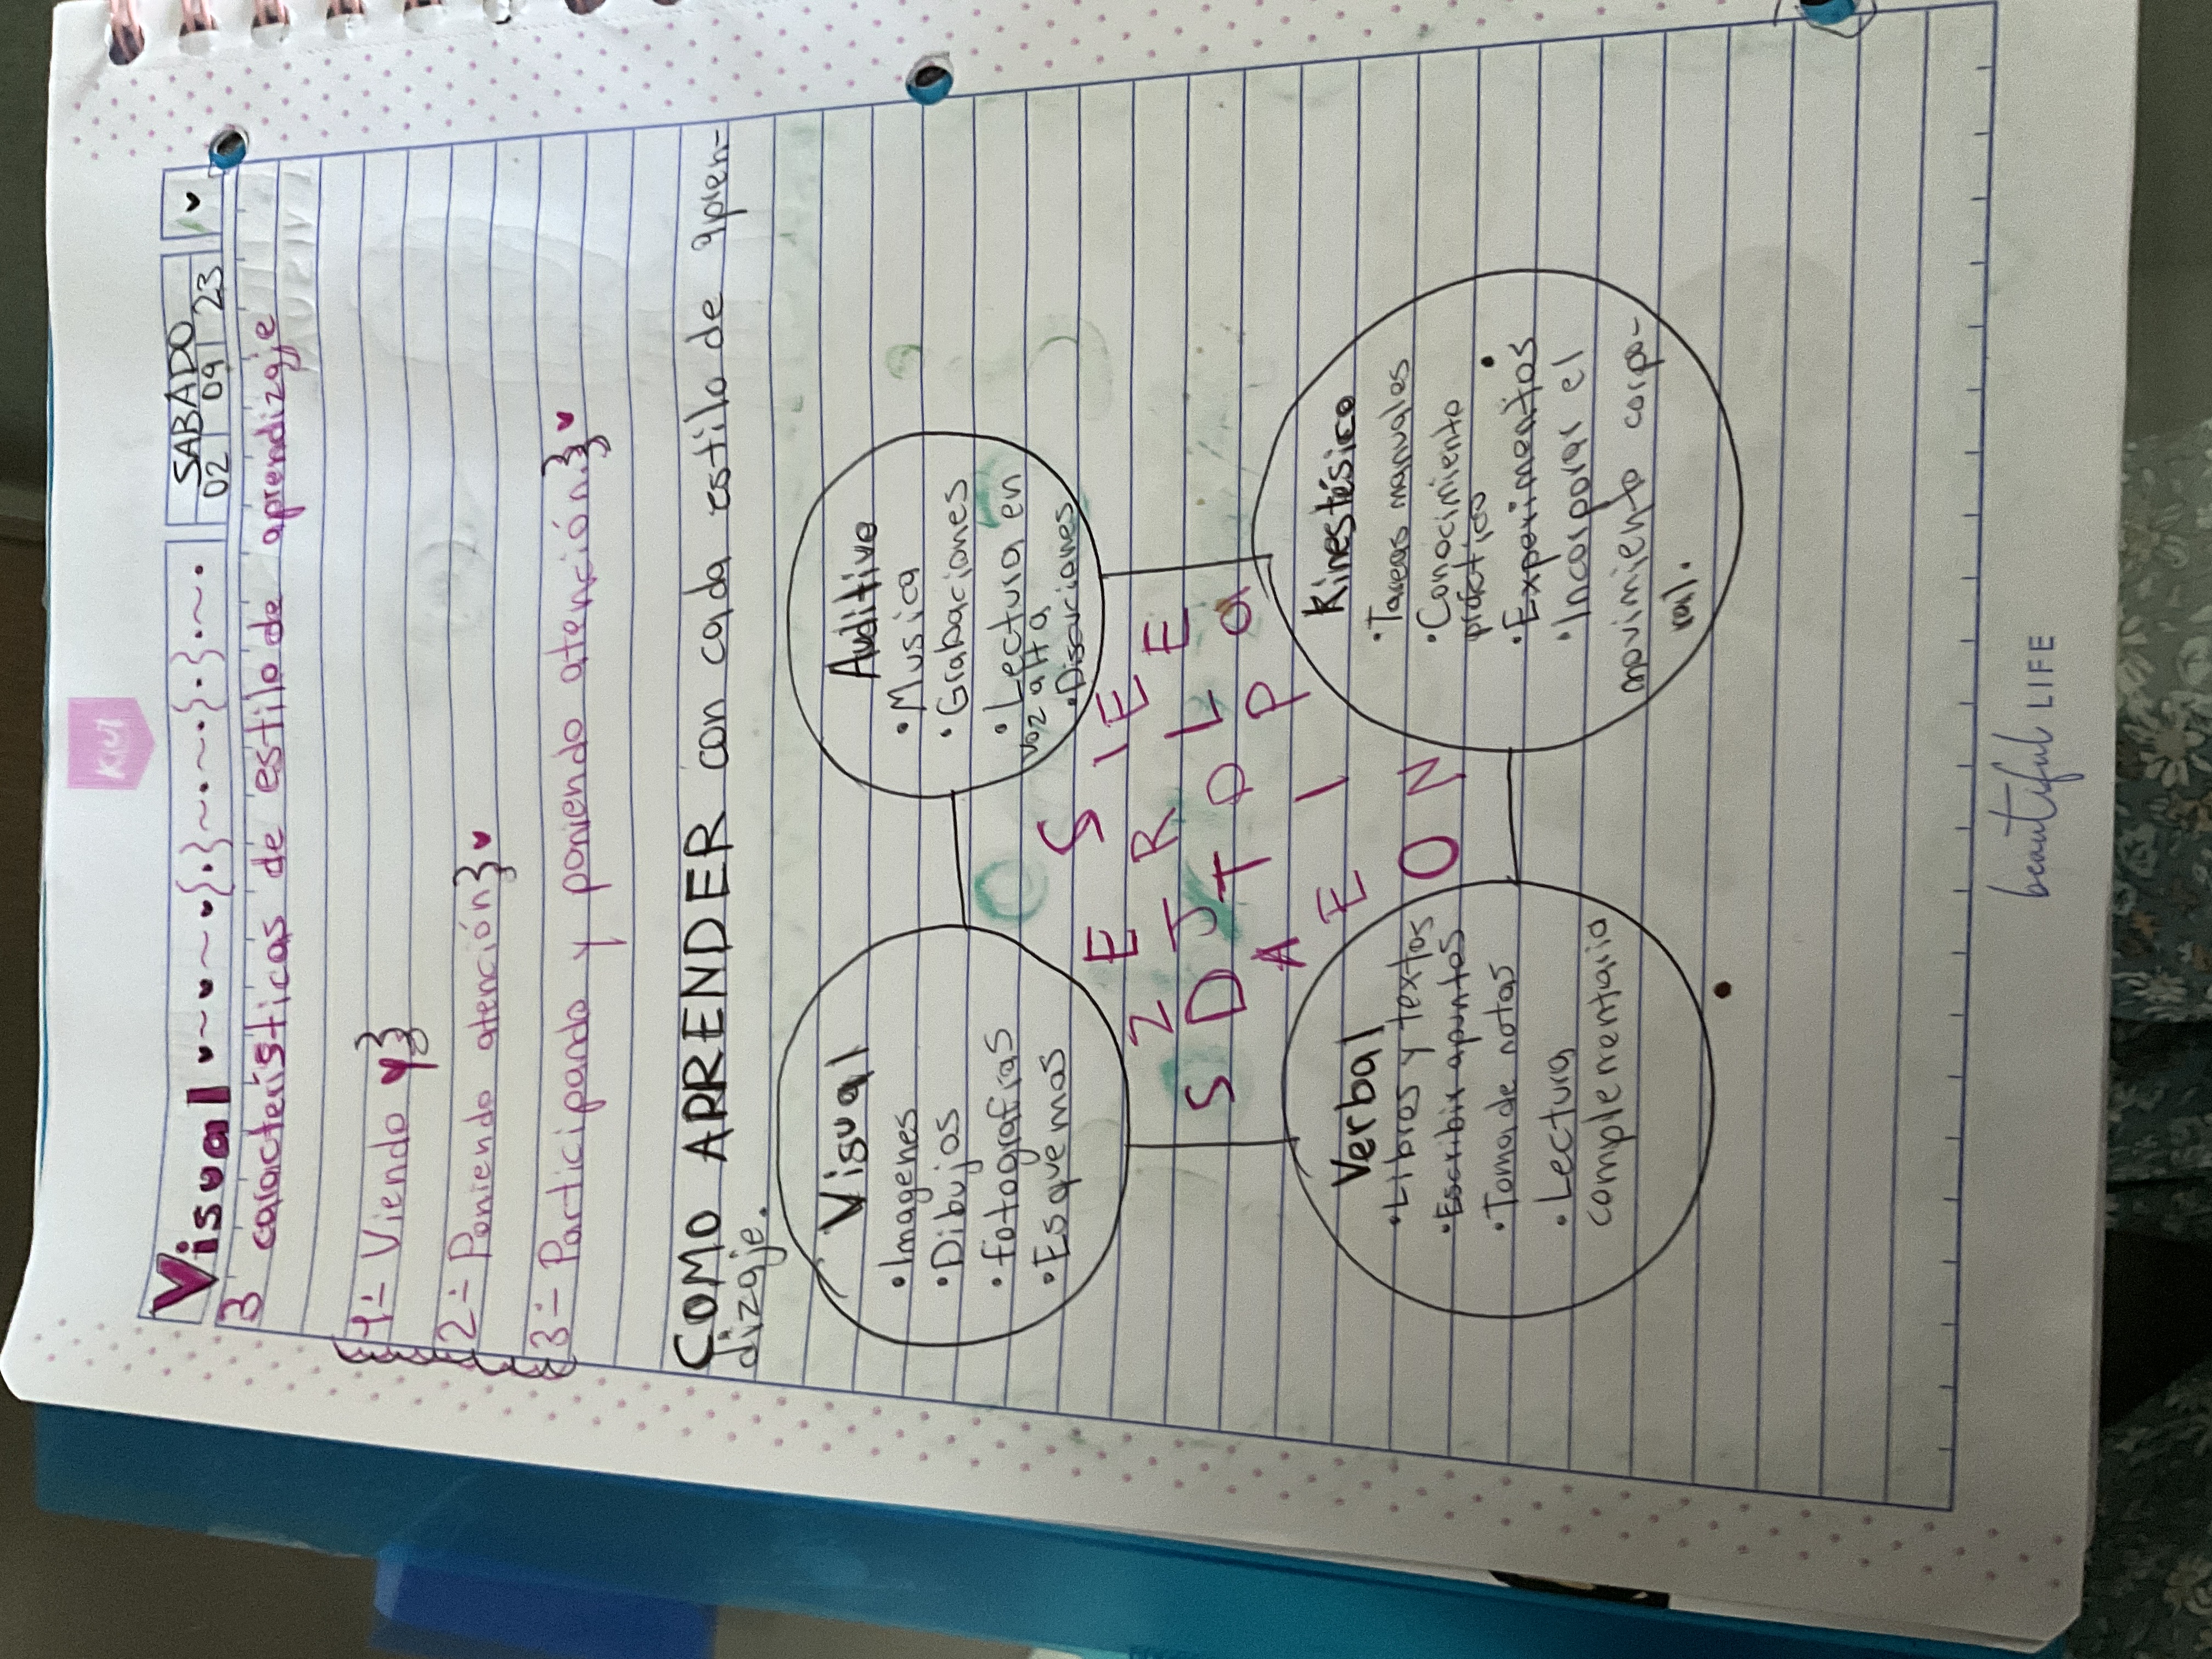 Kiut
Visual
SABADO
02 09 23
3 caracteristicas de estilo de aprendizaje
1- Viendo y
2- Poniendo atención
3- Participando y poniendo atención.
COMO APRENDER con cada estilo de apren-
dizaje.
Visual
• Imagenes
• Dibujos
• fotografias
• Esquemas
Auditivo
• Musica
• Grabaciones
• Lectura en
voz alta
• Discuciones
Verbal
• Libros y textos
• Escribir apuntos
• Toma de notas
• Lectura
complementario
Kinestésico
• Tareas manuales
• Conocimiento
práctico
• Experimentos
• Incorporar el
movimiento corpo-
ral.
beautiful LIFE